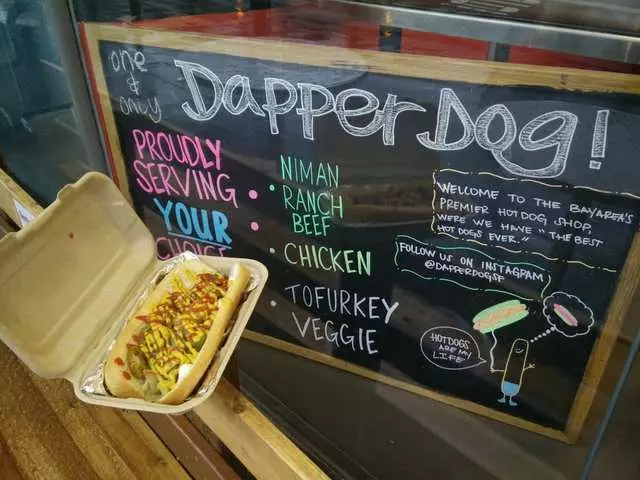 one
&
only
Dapper Dog!
PROUDLY
SERVING
YOUR
CHOICE
• NIMAN
RANCH
BEEF
• CHICKEN
• TOFURKEY
VEGGIE
WELCOME TO THE BAYAREA'S
PREMIER HOT DOG SHOP,
WERE WE HAVE "THE BEST
HOT DOGS EVER."
FOLLOW US ON INSTAGRAM
@DAPPERDOGSF
HOTDOGS
ARE MY
LIFE